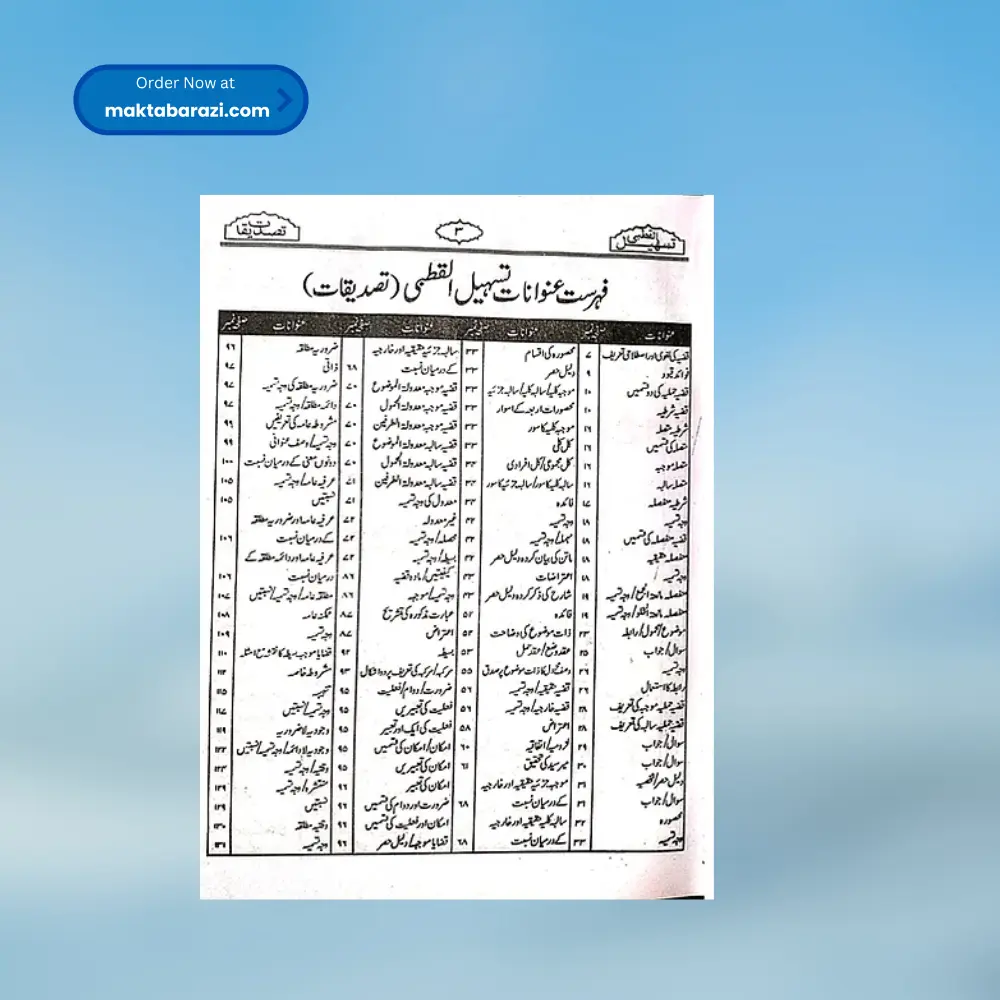 Order Now at
maktabarazi.com
تسہیل القطبی
۳
تصدیقات
فہرست عنوانات تسہیل القطبی (تصدیقات)
عنوانات
صفحہ نمبر
عنوانات
صفحہ نمبر
عنوانات
صفحہ نمبر
عنوانات
صفحہ نمبر
قضیہ کی لغوی اور اصطلاحی تعریف ۷
فوائد قیود ۹
قضیہ حملیہ کی دو قسمیں ۱۰
قضیہ شرطیہ ۱۰
شرطیہ متصلہ ۱۶
متصلہ کی قسمیں ۱۶
متصلہ موجبہ ۱۶
متصلہ سالبہ ۱۶
شرطیہ منفصلہ ۱۷
وجہ تسمیہ ۱۸
قضیہ منفصلہ کی قسمیں ۱۸
منفصلہ حقیقیہ ۱۸
وجہ تسمیہ ۱۸
منفصلہ مانعۃ الجمع/وجہ تسمیہ ۱۹
منفصلہ مانعۃ الخلو/وجہ تسمیہ ۱۹
موضوع/محمول/رابطہ ۲۳
سوال/جواب ۲۵
وجہ تسمیہ ۲۶
رابطہ کا استعمال ۲۶
قضیہ حملیہ موجبہ کی تعریف ۲۸
قضیہ حملیہ سالبہ کی تعریف ۲۸
سوال/جواب ۲۹
سوال/جواب ۳۰
دلیل حصر/شخصیہ ۳۱
سوال/جواب ۳۱
محصورہ ۳۲
وجہ تسمیہ ۳۳
محصورہ کی اقسام ۳۳
دلیل حصر ۳۳
موجبہ کلیہ/سالبہ کلیہ/سالبہ جزئیہ ۳۳
محصورات اربعہ کے اسوار ۳۳
موجبہ کلیہ کا سور ۳۳
کل کلی ۳۳
کل مجموعی/کل افرادی ۳۴
سالبہ کلیہ کا سور/سالبہ جزئیہ کا سور ۳۴
فائدہ
وجہ تسمیہ
مہملہ/وجہ تسمیہ
ماتن کی بیان کردہ دلیل حصر
اعتراضات
شارح کی ذکر کردہ دلیل حصر
فائدہ ۵۲
ذات موضوع کی وضاحت ۵۲
عقد وضع/عقد حمل ۵۳
وصف محمول کا ذات موضوع پر صدق ۵۵
قضیہ حقیقیہ/وجہ تسمیہ ۵۶
قضیہ خارجیہ/وجہ تسمیہ ۵۶
اعتراض ۵۸
لزومیہ/اتفاقیہ ۶۰
میر سید کی تحقیق ۶۱
موجبہ جزئیہ حقیقیہ اور خارجیہ
کے درمیان نسبت ۶۸
سالبہ کلیہ حقیقیہ اور خارجیہ
کے درمیان نسبت ۶۸
سالبہ جزئیہ حقیقیہ اور خارجیہ
کے درمیان نسبت ۶۸
قضیہ موجبہ معدولۃ الموضوع ۷۰
قضیہ موجبہ معدولۃ المحمول ۷۰
قضیہ موجبہ معدولۃ الطرفین ۷۰
قضیہ سالبہ معدولۃ الموضوع ۷۰
قضیہ سالبہ معدولۃ المحمول ۷۰
قضیہ سالبہ معدولۃ الطرفین ۷۱
معدول کی وجہ تسمیہ ۷۱
غیر معدولہ ۷۲
محصلہ/وجہ تسمیہ ۷۲
بسیطہ/وجہ تسمیہ ۷۲
کیفیتیں/مادہ قضیہ ۸۶
وجہ تسمیہ/موجبہ ۸۶
عبارت مذکورہ کی تشریح ۸۷
اعتراض ۸۷
بسیطہ ۹۲
مرکبہ/مرکبہ کی تعریف پر دو اشکال ۹۳
ضرورت/دوام/فعلیت ۹۵
فعلیت کی تعبیریں ۹۵
فعلیت کی ایک اور تعبیر ۹۵
امکان/امکان کی قسمیں ۹۵
امکان کی تعبیریں ۹۵
امکان کی تعبیر ۹۶
ضرورت اور دوام کی قسمیں ۹۶
امکان اور فعلیت کی قسمیں ۹۶
قضایا موجبہ/دلیل حصر ۹۶
ضروریہ مطلقہ ۹۶
ذاتی ۹۷
ضروریہ مطلقہ کی وجہ تسمیہ ۹۷
دائمہ مطلقہ/وجہ تسمیہ ۹۷
مشروطہ عامہ کی تعریفیں ۹۶
وجہ تسمیہ/وصف عنوانی ۹۹
دونوں معنی کے درمیان نسبت ۱۰۰
عرفیہ عامہ/وجہ تسمیہ ۱۰۵
نسبتیں ۱۰۵
عرفیہ عامہ اور ضروریہ مطلقہ
کے درمیان نسبت ۱۰۶
عرفیہ عامہ اور دائمہ مطلقہ کے
درمیان نسبت ۱۰۶
مطلقہ عامہ/وجہ تسمیہ/نسبتیں ۱۰۷
ممکنہ عامہ ۱۰۸
وجہ تسمیہ ۱۰۹
قضایا موجہہ بسیطہ کا نقشہ مع امثلہ ۱۱۰
مشروطہ خاصہ ۱۱۲
تنبیہ ۱۱۵
وجہ تسمیہ/نسبتیں ۱۱۷
وجودیہ لا ضروریہ ۱۱۹
وجودیہ لا دائمہ/وجہ تسمیہ/نسبتیں ۱۲۲
وقتیہ/وجہ تسمیہ ۱۲۳
منتشرہ/وجہ تسمیہ ۱۲۹
نسبتیں ۱۲۹
وقتیہ مطلقہ ۱۳۰
وجہ تسمیہ ۱۳۱